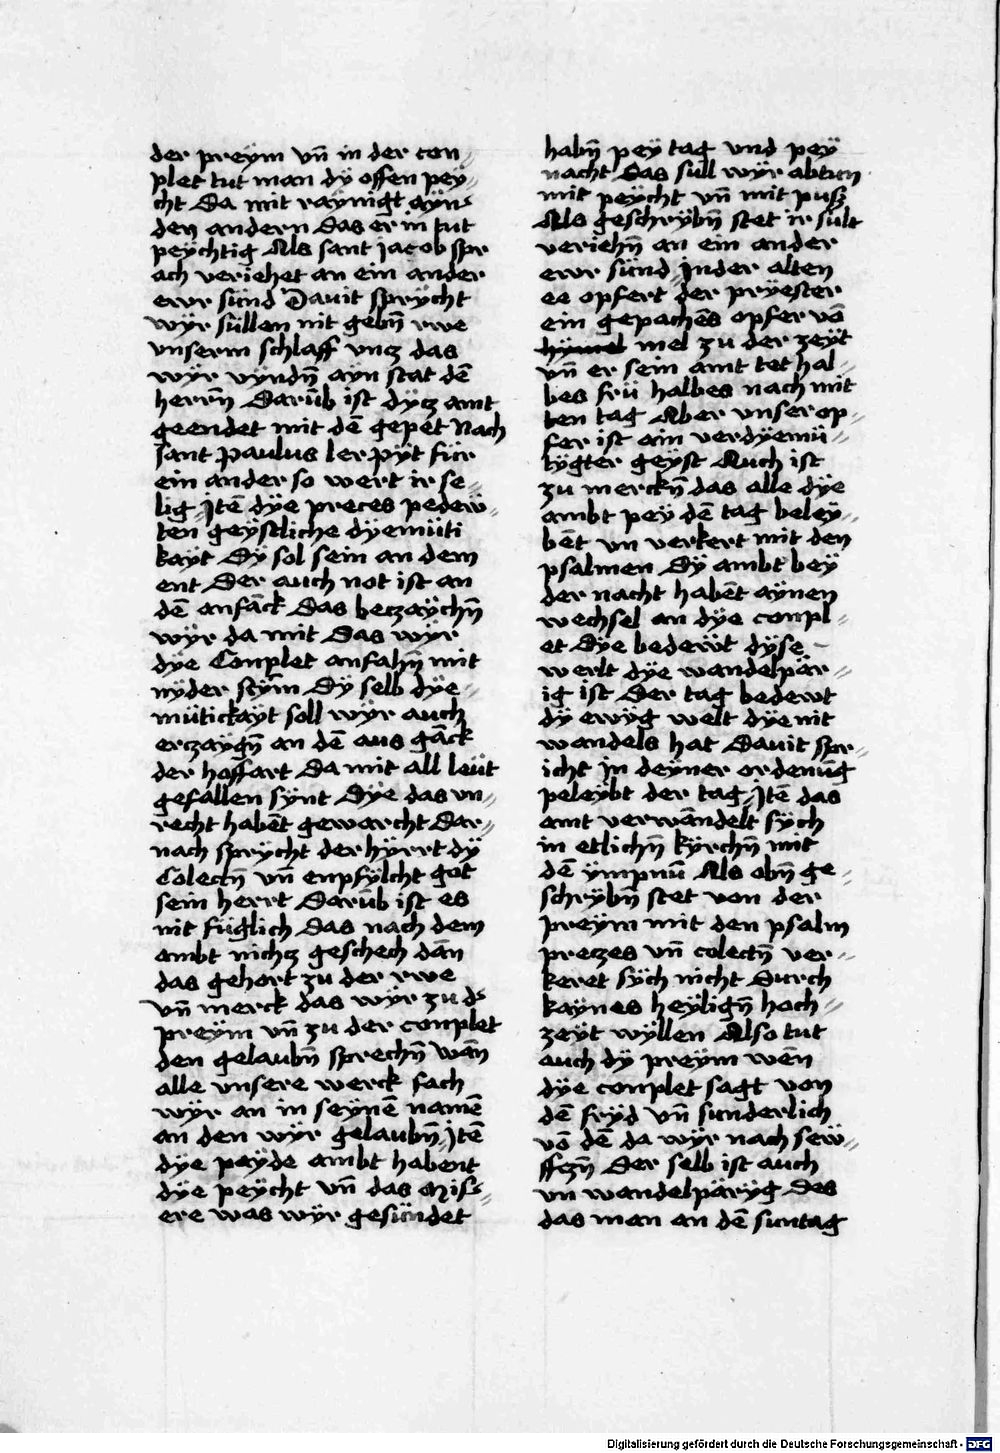 der preÿm vn̄ in der con⸗
plet tut man dÿ offen peÿ⸗
cht Da mit raÿnigt aÿns
den andern Das er in tut
peÿchtig Als sant jacob spr
ach veriehet an ein ander
ewr sünd Dauit sprÿcht
wÿr süllen nit gebn̄ rwe
vnserm schlaff vncz das
wÿr vÿndn̄ aÿn stat dē
herrn̄ Darūb ist dÿcz amt
geendet mit dē gepet Nach
sant paulus ler pÿt für
ein ander so wert ir se⸗
lig jtē dÿe preces pedew̄⸗
ten geÿstliche dÿemüti
kaÿt Dÿ sol sein an dem
ent Der auch not ist an
dē anfāck Das beczaÿchn̄
wÿr da mit Das wÿr
dÿe Conplet anfahn̄ mit
nÿder stÿm̄ Dÿ selb dÿe⸗
mütickaÿt soll wÿr auch
erczaÿgn̄ an dē aus gāck
der hoffart Da mit all leüt
gefallen sÿnt Dÿe das vn⸗
recht habēt geworcht Dar⸗
nach sprÿcht der hÿrrt dÿ
Colectn̄ vn̄ enpfÿlcht got
sein herrt Darūb ist es
nit füglich Das nach dem
ambt nichcz geschech dān
das gehort zu der rwe
vn̄ merck das wÿr zu ds
preÿm vn̄ zu der conplet
den gelaubn̄ sprechn̄ wān
alle vnsere werck fach
wÿr an in seÿnē namē
an den wÿr gelaubn̄ jtē
dÿe paÿde ambt habent
dÿe peÿcht vn̄ das Mise⸗
ere was wÿr gesündet
habn̄ peÿ tag vnd peÿ
nacht Das süll wÿr abtun
mit peÿcht vn̄ mit puß
Als geschrÿbn̄ stet ir sült
veriehn̄ an ein ander
ewr sünd Jn der alten
ee opfert der prÿester
ein gepachēs opfer vō
hÿmel mel zu der zeÿt
vn̄ er sein amt tet hal⸗
bes frü halbes nach mit
ten tag Aber vnser op⸗
fer ist ain verdÿemü⸗
tÿgter geÿst Auch ist
zu merckn̄ das alle dÿe
ambt peÿ dē tag beleÿ⸗
bēt vn verkert mit den
psalmen Dÿ ambt beÿ
der nacht habēt aÿnen
wechsel an dÿe conpl⸗
et Dÿe bedewt dÿse
werlt dÿe wandelpär⸗
ig ist Der tag bedewt
dÿ ewÿg welt dÿe nit
wandels hat Dauit spr⸗
icht in deÿner ordenūg
peleÿbt der tag jtē das
amt verwāndelt sÿch
in etlichn̄ kÿrchn̄ mit
dē ÿmpnū Als obn̄ ge⸗
schrÿbn̄ stet von der
preÿm mit den psalm
preczes vn̄ colectn̄ ver⸗
keret sÿch nicht Durch
kaÿnes heÿlign̄ hoch⸗
zeÿt wÿllen Also tut
auch dÿ preÿm wēn
dÿe conplet sagt von
dē frÿd vn̄ sunderlich
vō dē da wÿr nach sew⸗
ffczn̄ Der selb ist auch
vn wandelpärÿg Des
das man an dē suntag
Digitalisierung gefördert durch die Deutsche Forschungsgemeinschaft - DFG